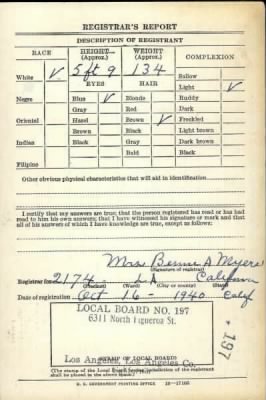 REGISTRAR'S REPORT
DESCRIPTION OF REGISTRANT
RACE HEIGHT (Approx.) WEIGHT (Approx.) COMPLEXION
White V 5 ft 9 134 Sallow
EYES HAIR Light V
Negro Blue V Blonde Ruddy
Gray Red Dark
Oriental Hazel Brown V Freckled
Brown Black Light brown
Indian Black Gray Dark brown
Bald Black
Filipino
Other obvious physical characteristics that will aid in identification
I certify that my answers are true; that the person registered has read or has had read to him his own answers; that I have witnessed his signature or mark and that all of his answers of which I have knowledge are true, except as follows:
Mrs. A
(Signature of registrar)
Registrar for 2174 LA California
(Precinct) (Ward) (City or county) (State)
Date of registration Oct 16 - 1940 Calif
LOCAL BOARD NO. 197
6311 North Figueroa St.
Los Angeles, Los Angeles Co.
(STAMP OF LOCAL BOARD)
(The stamp of the Local Board having jurisdiction of the registrant shall be placed in the above space.)
U. S. GOVERNMENT PRINTING OFFICE 16-17105
* 197